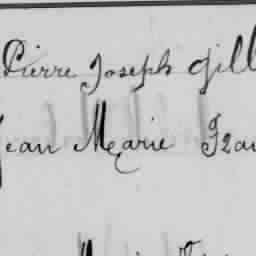 Pierre Joseph Gill
Jean Marie Fran